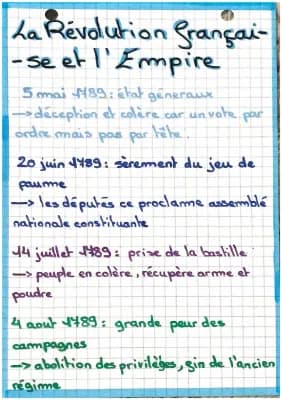 La Révolution françai-
-se et l'Emmpire
5 mai 1789 : état géneraux
→ déception et colère car un vote par
ordre mais pas par tête.
20 juin 1789 : sèrement du jeu de
paume
→ les députés ce proclame assemblé
nationale constituante
14 juillet 1789 : prise de la bastille
→ peuple en colère, récupère arme et
poudre
4 aout 1789 : grande peur des
campagnes
→ abolition des privilèges, fin de l'ancien
régime